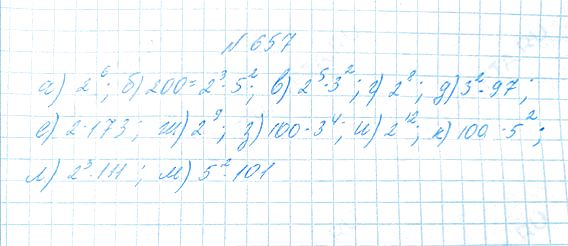 №657
а) 2⁶; б) 200=2³·5²; в) 2⁵·3²; г) 2⁸; д) 3²·97;
е) 2·173; ж) 2⁹; з) 100·3⁴; и) 2¹²; к) 100·5²;
л) 2³·111; м) 5²·101